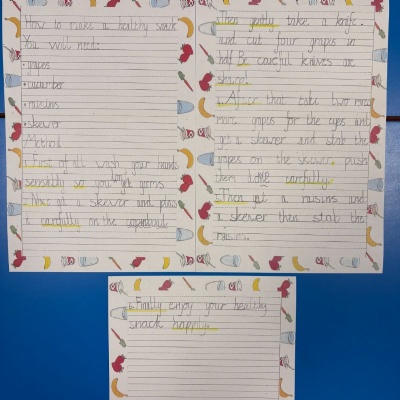 How to make a healthy snack
You will need:
•grapes
•cucumber
•raisins
•skewer
Method
1. First of all wash your hands
sensibly so you don't get germs.
2. Next get a skewer and place
carefully on the
3. Then gently take a knife
and cut four grapes in
half. Be careful knives are
sharp!
4. After that take two more
more grapes for the eyes and
get a skewer and stab the
grapes on the skewer. push
them carefully.
5. Then get a raisins and
a skewer then stab the
raisins.
6. Finally enjoy your healthy
snack happily.